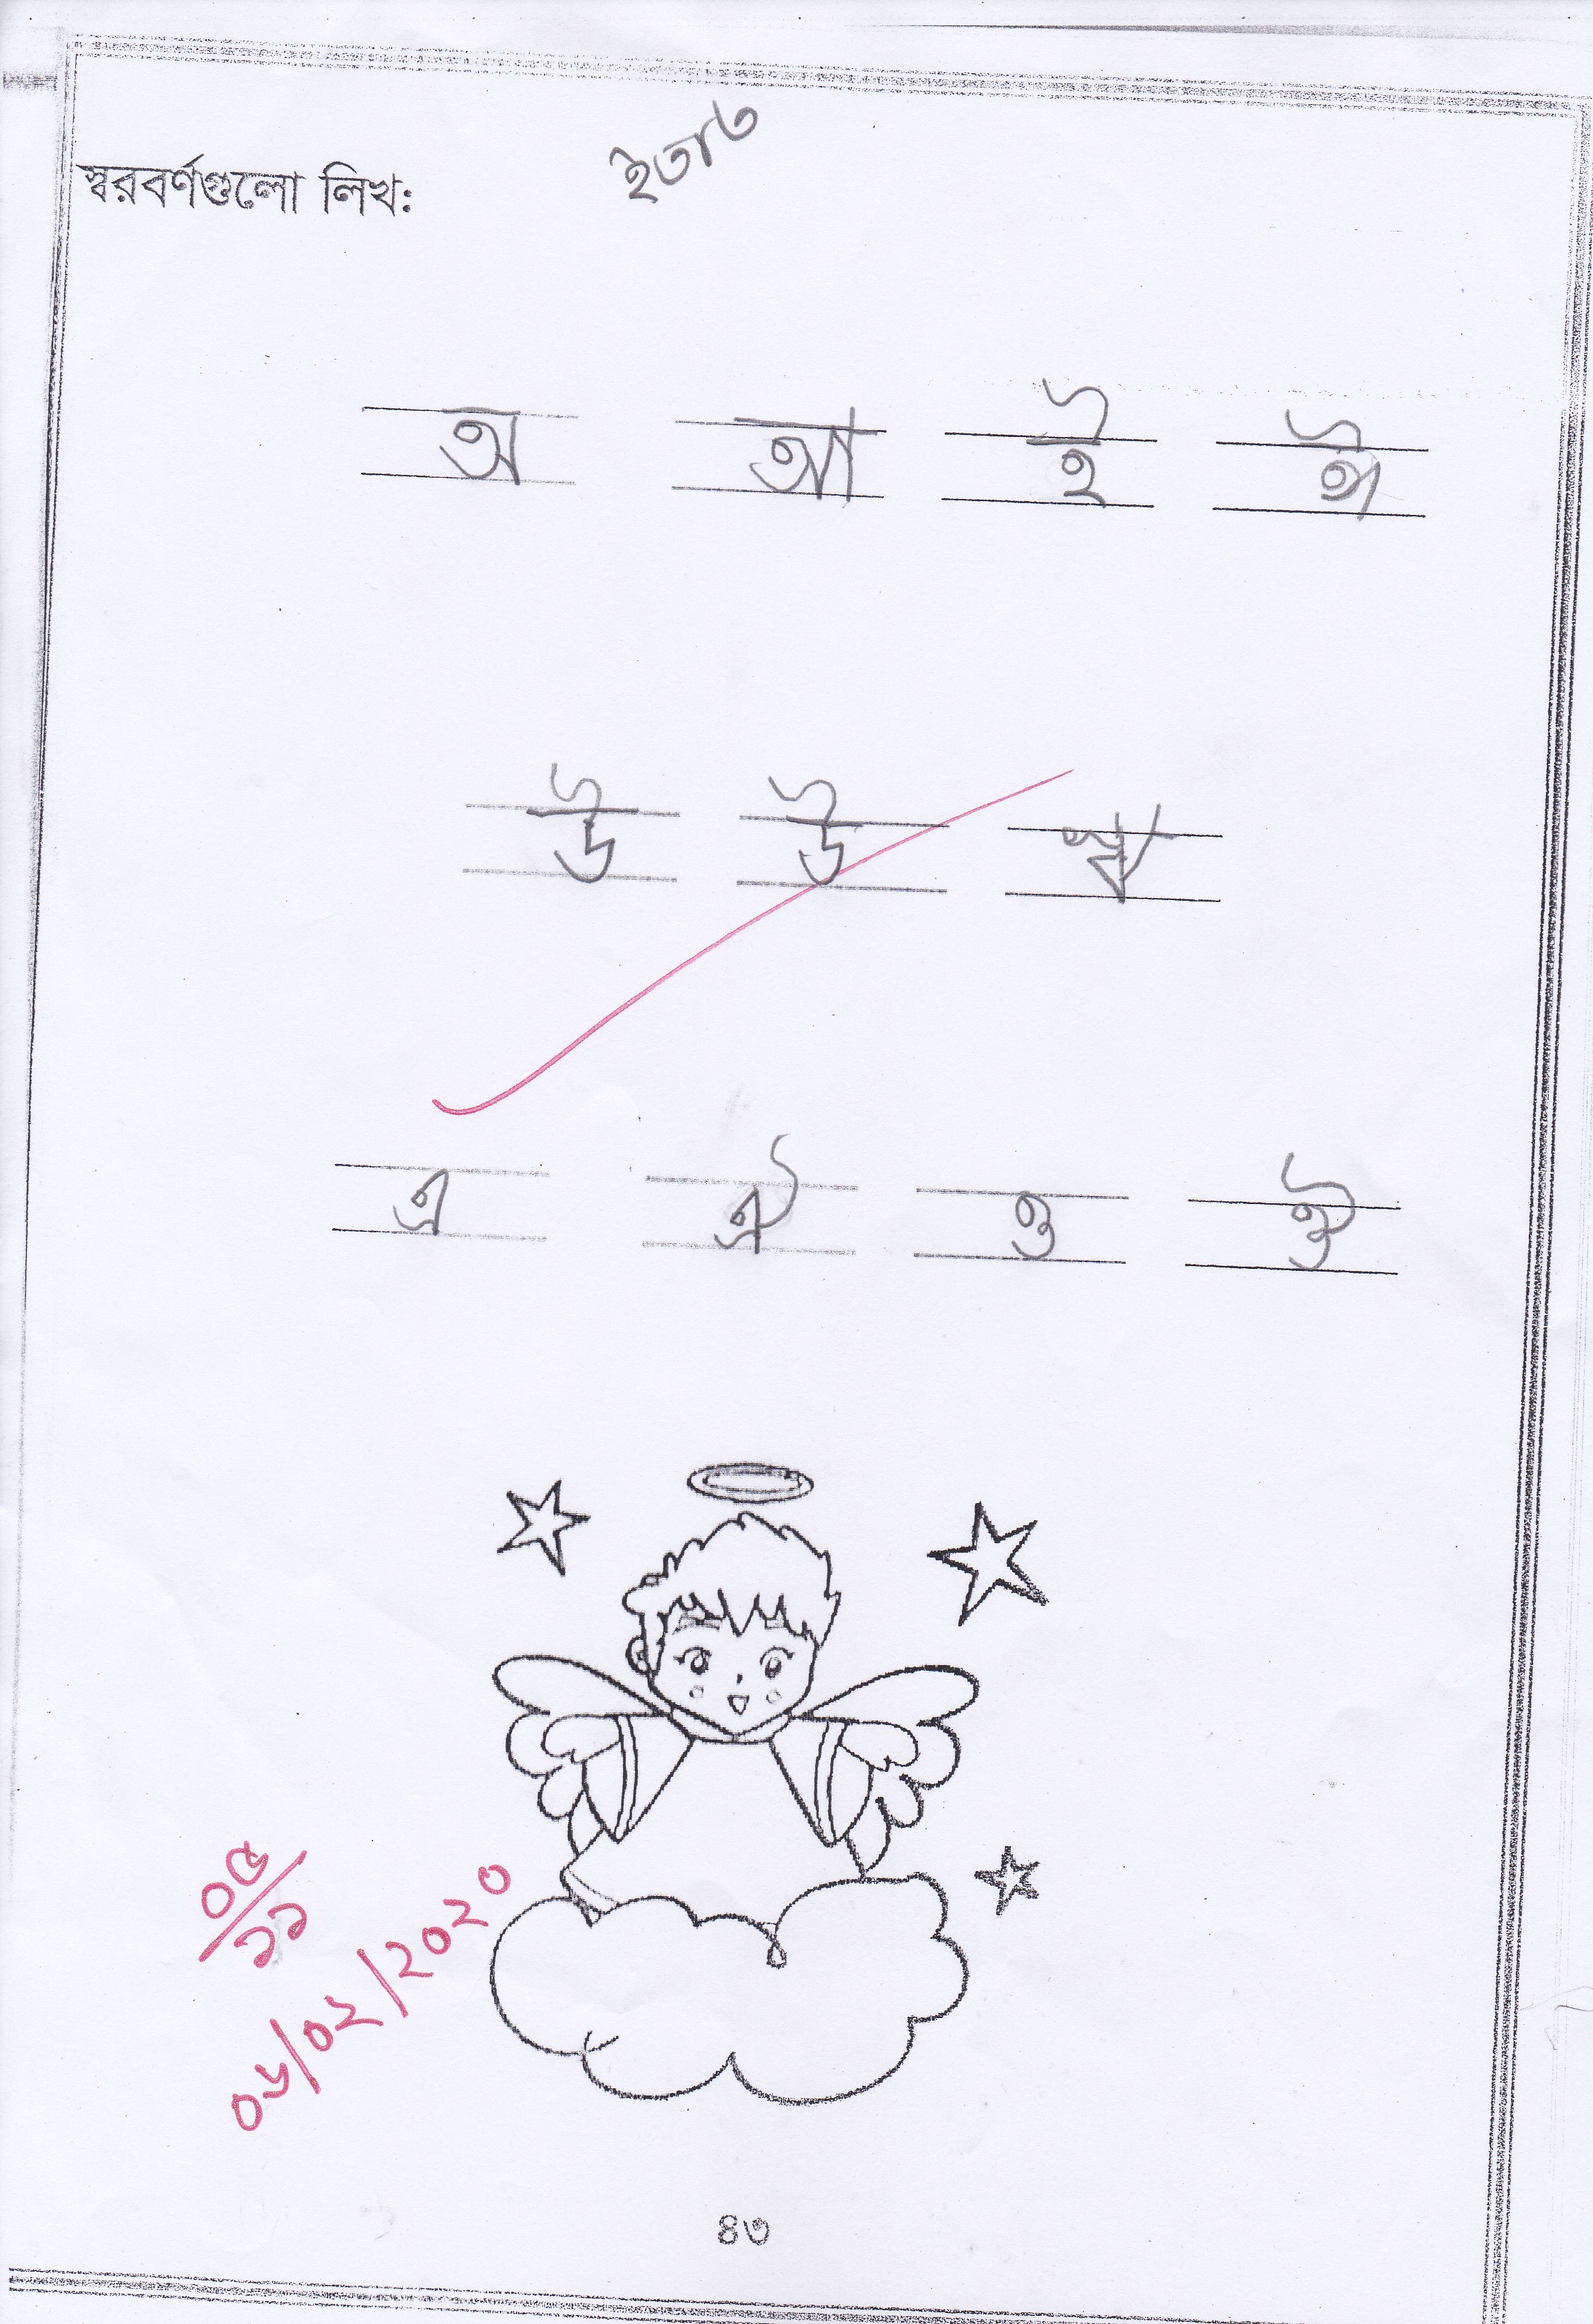 স্বরবর্ণগুলো লিখ:
ইতাত
অ আ ই ঈ
উ উ ঋ
এ ঐ ও ঔ
০৫/১১
০৬/০২/২০২০
৪৩